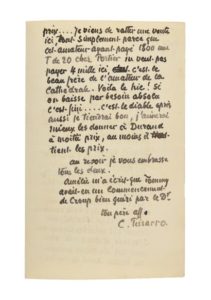 prix.... Je viens de rater une vente
ici tout simplement parce que
cet amateur ayant payé 1800 un
T de 20 chez Portier ne veut pas
payer 4 mille ici, c'est le
beau frère de l'amateur de la
Cathédrale. Voilà le hic! si
on baisse par besoin absolu
c'est fini.... c'est le diable après
aussi je tiendrai bon, j'aimerai
mieux les donner à Durand
à moitié prix, au moins il
tient les prix.
au revoir je vous embrasse
tous les deux.
Amélie m'a écrit que Tommy
avait eu un commencement
de Croup bien guéri par le Dr.
ton père aff.
C. Pissarro